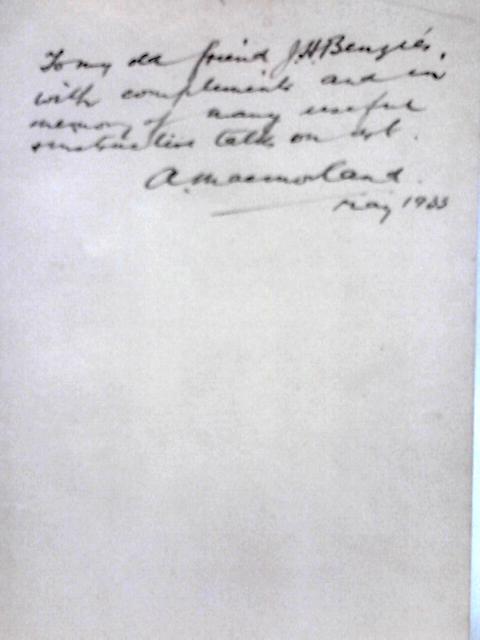 To my old friend J.H. Benzies,
with compliments and in
memory of many useful
instructive talks on art.
A.
May 1933